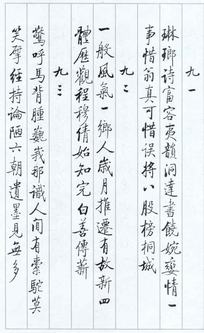 九一
琳瑯詩富客夷韻洞達書饒婉孌情一
事惜翁真可惜誤將八股榜桐城
九二
一般風氣一鄉人歲月推遷有故新四
體歷觀程穆倩始知完白善傳薪
九三
驚呼馬背腫巍峩那識人間有橐駝莫
笑擘經持論陋六朝遺墨見無多